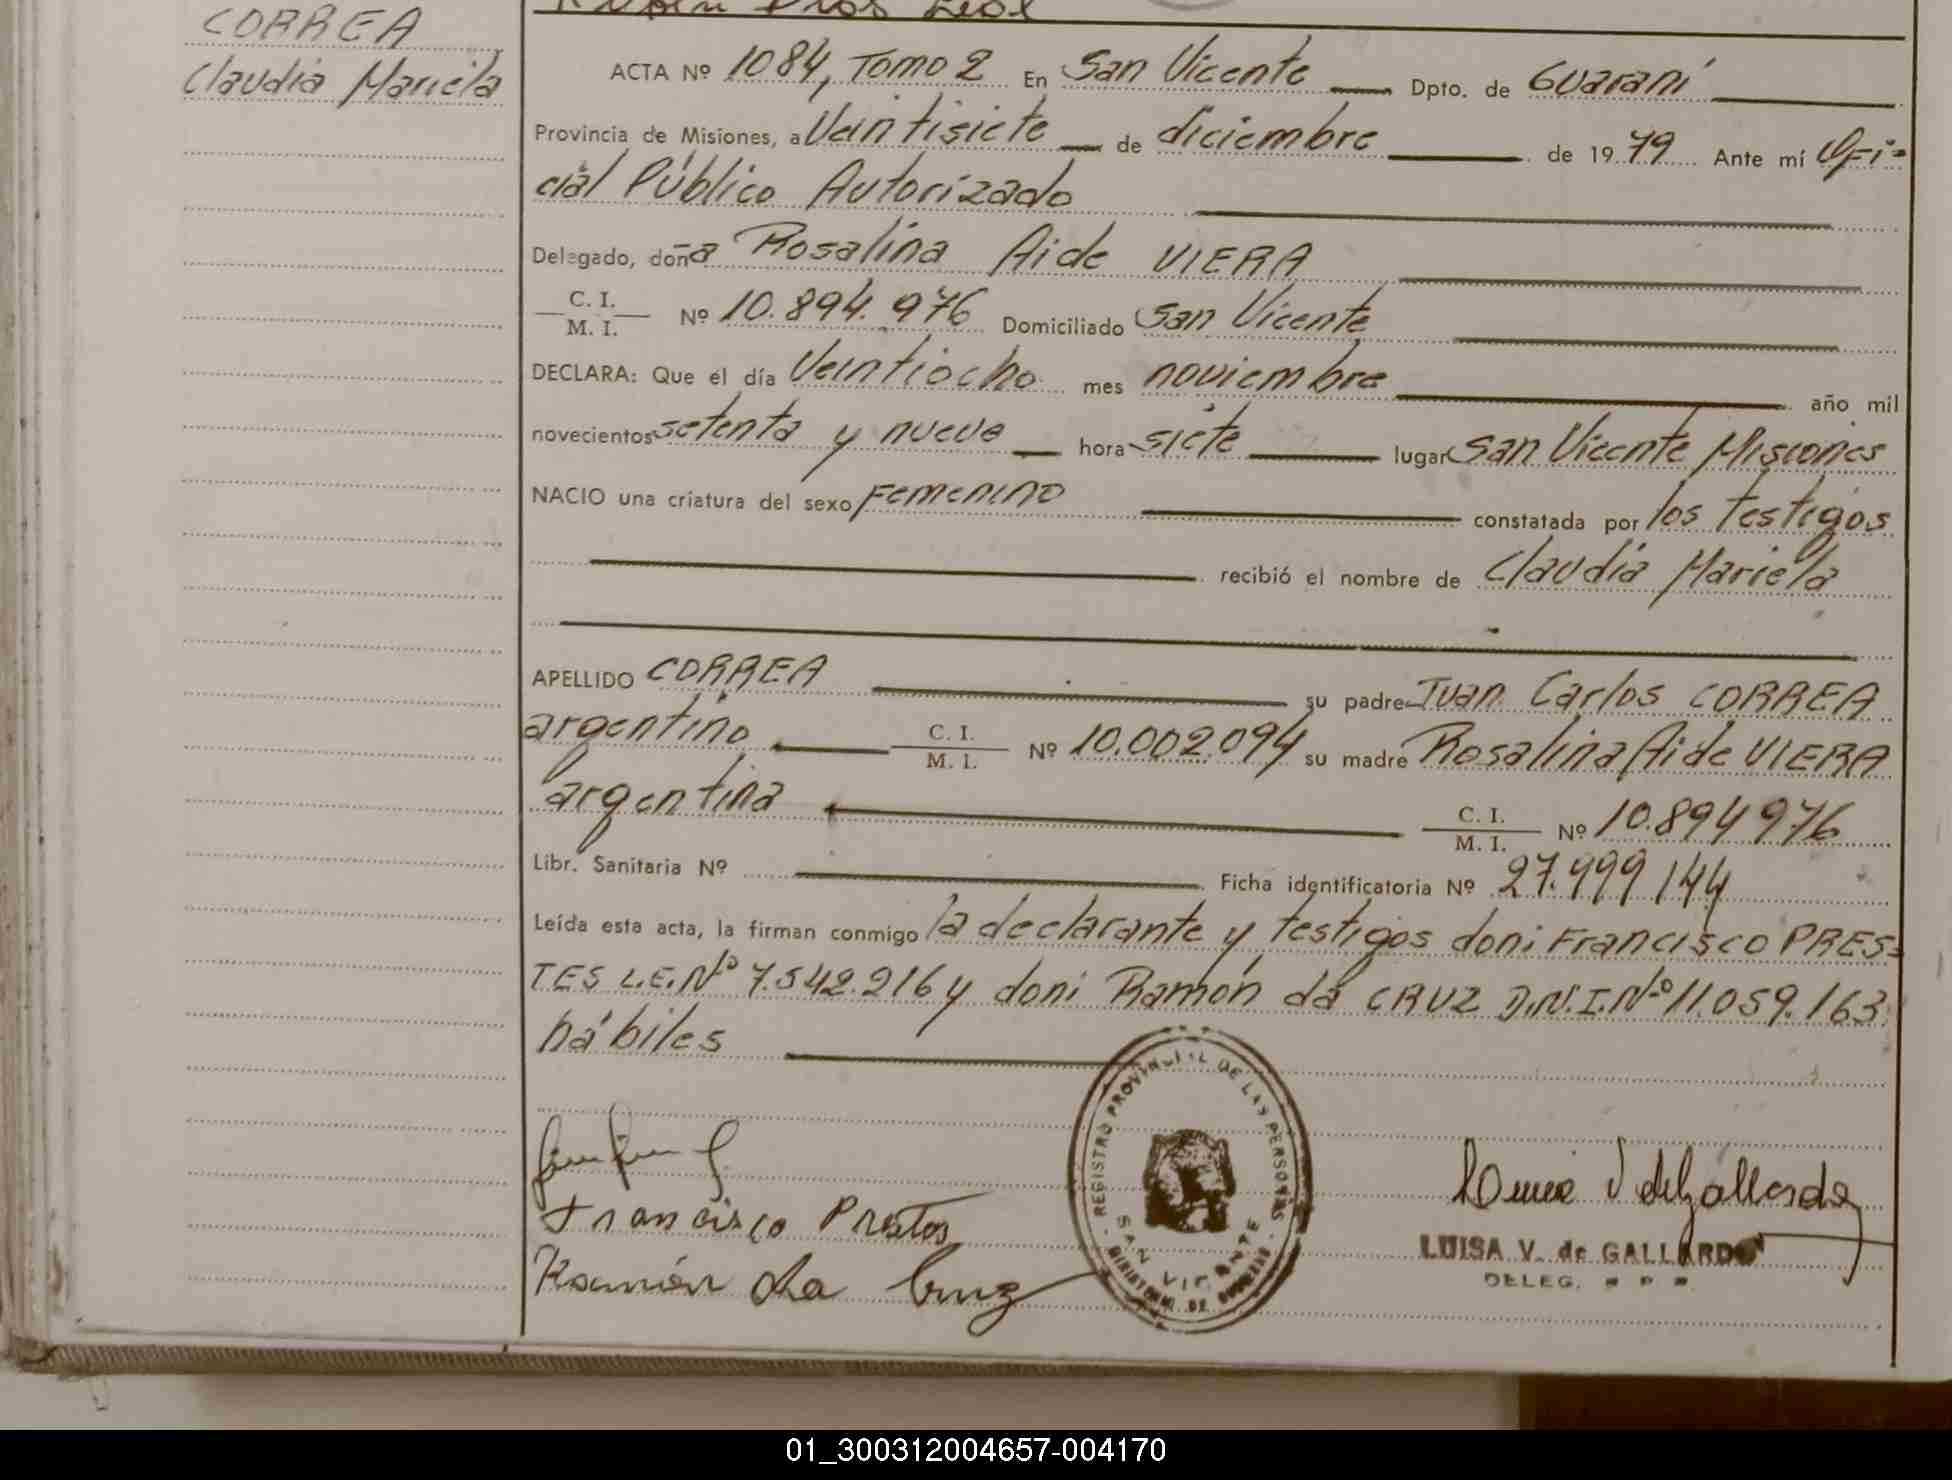 CORREA
Claudia Mariela
ACTA Nº 1084, Tomo 2 En San Vicente Dpto. de Guaraní
Provincia de Misiones, a Veintisiete de diciembre de 1979 Ante mí Ofi-
cial Público Autorizado
Delegado, doña Rosalina Aide VIERA
C. I.
M. I. Nº 10.894.976 Domiciliado San Vicente
DECLARA: Que el día Veintiocho mes noviembre año mil
novecientos setenta y nueve hora siete lugar San Vicente Misiones
NACIO una criatura del sexo Femenino constatada por los testigos
recibió el nombre de Claudia Mariela
APELLIDO CORREA su padre Juan Carlos CORREA
argentino C. I.
M. I. Nº 10.002.094 su madre Rosalina Aide VIERA
argentina C. I.
M. I. Nº 10.894976
Libr. Sanitaria Nº Ficha identificatoria Nº 27.999.144
Leída esta acta, la firman conmigo la declarante y testigos doni Francisco PRES=
TES L.E.Nº 7.542.216 y doni Ramón da CRUZ D.N.I.Nº 11.059.163
hábiles
REGISTRO PROVINCIAL DE LAS PERSONAS
SAN VICENTE
MINISTERIO DE GOBIERNO
Francisco Prestes
Ramón da Cruz
LUISA V. de GALLARDO
DELEG.
01_300312004657-004170